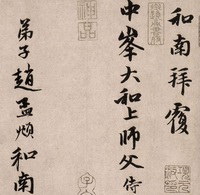 和南拜覆
中峯大和上師父侍
弟子趙孟頫和南